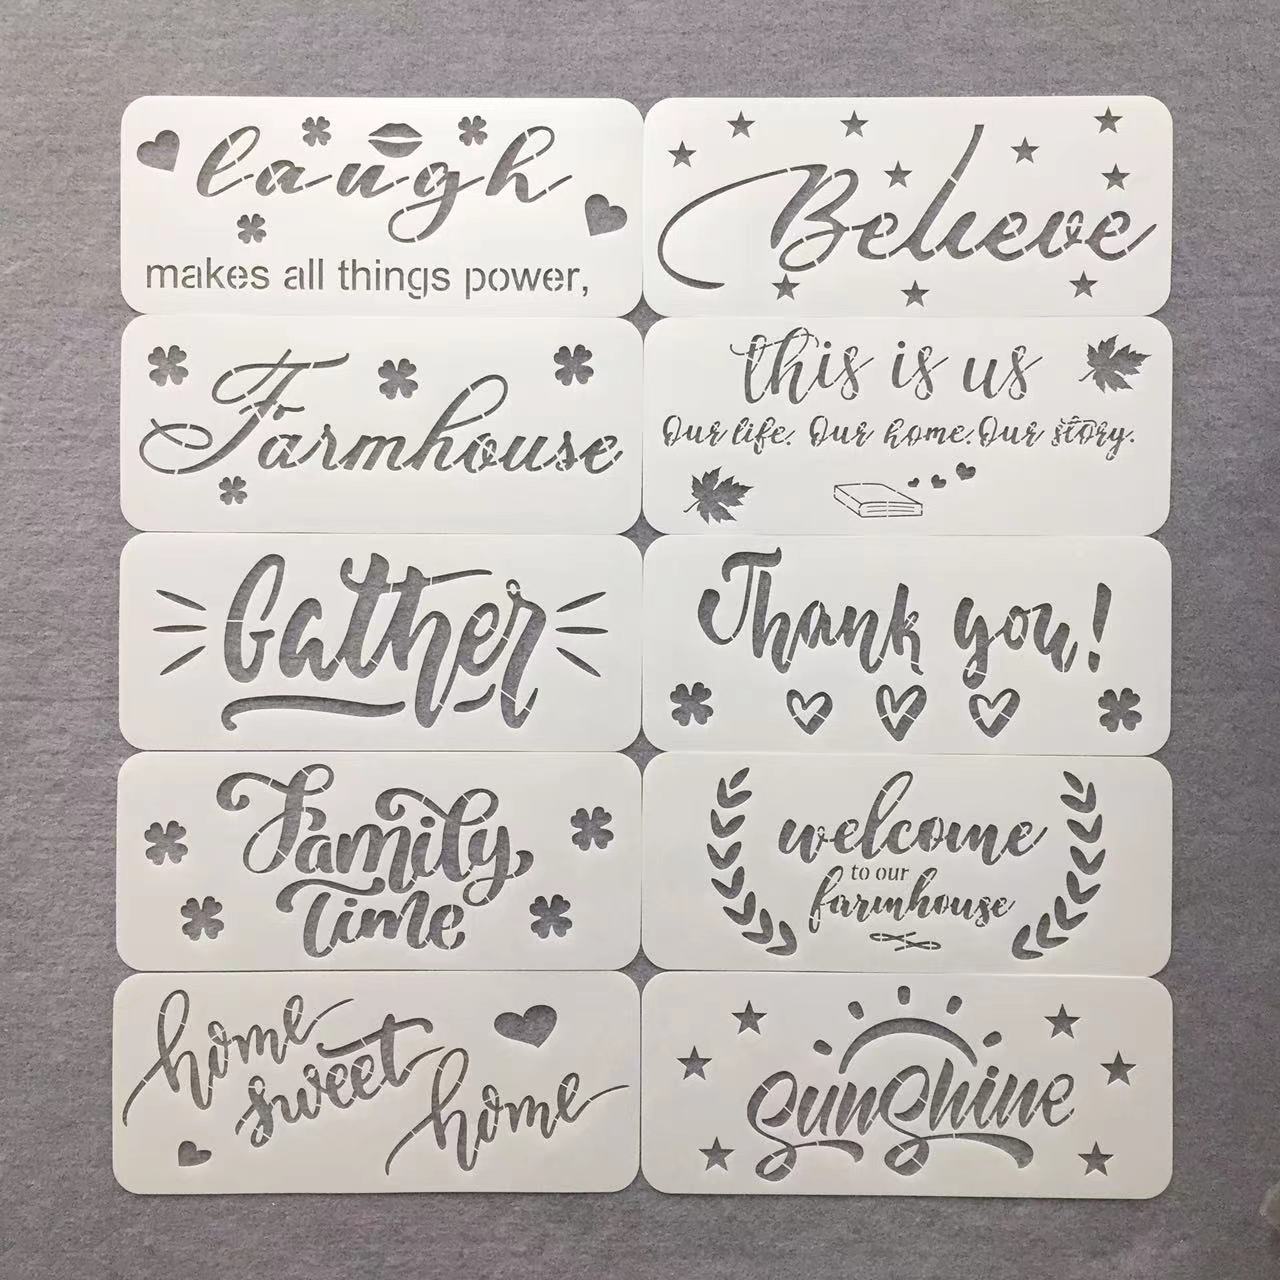 laugh
makes all things power,
Believe
Farmhouse
this is us
Our life. Our home. Our story.
Gather
Thank you!
Family
Time
welcome
to our
farmhouse
home
sweet
home
sunshine